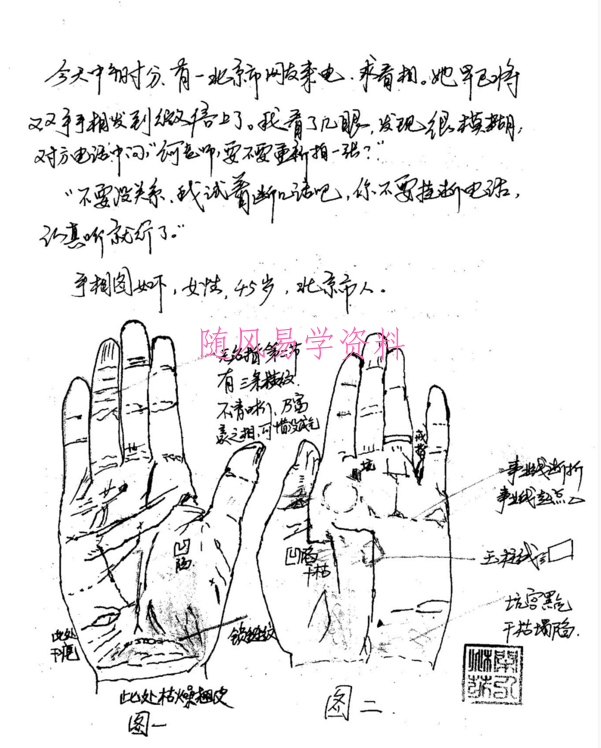 今天中午时分,有一北京市网友来电,求看相。她早已将
双手手相发到微信上了。我看了几眼,发现很模糊,
对方电话中问,"何老师,要不要重新拍一张?"
"不要没关系,我试着断几话吧,你不要挂断电话,
认真听就行了。"
手相图如下,女性,45岁,北京市人。
随风易学资料
无名指第二节
有三条横纹
凹陷
此处
锁链纹
此处枯燥
图一
坑
戒指
凹陷
干枯
事业线断折
事业线起点
玉柱线
坑宫黑色
干枯塌陷.
图二